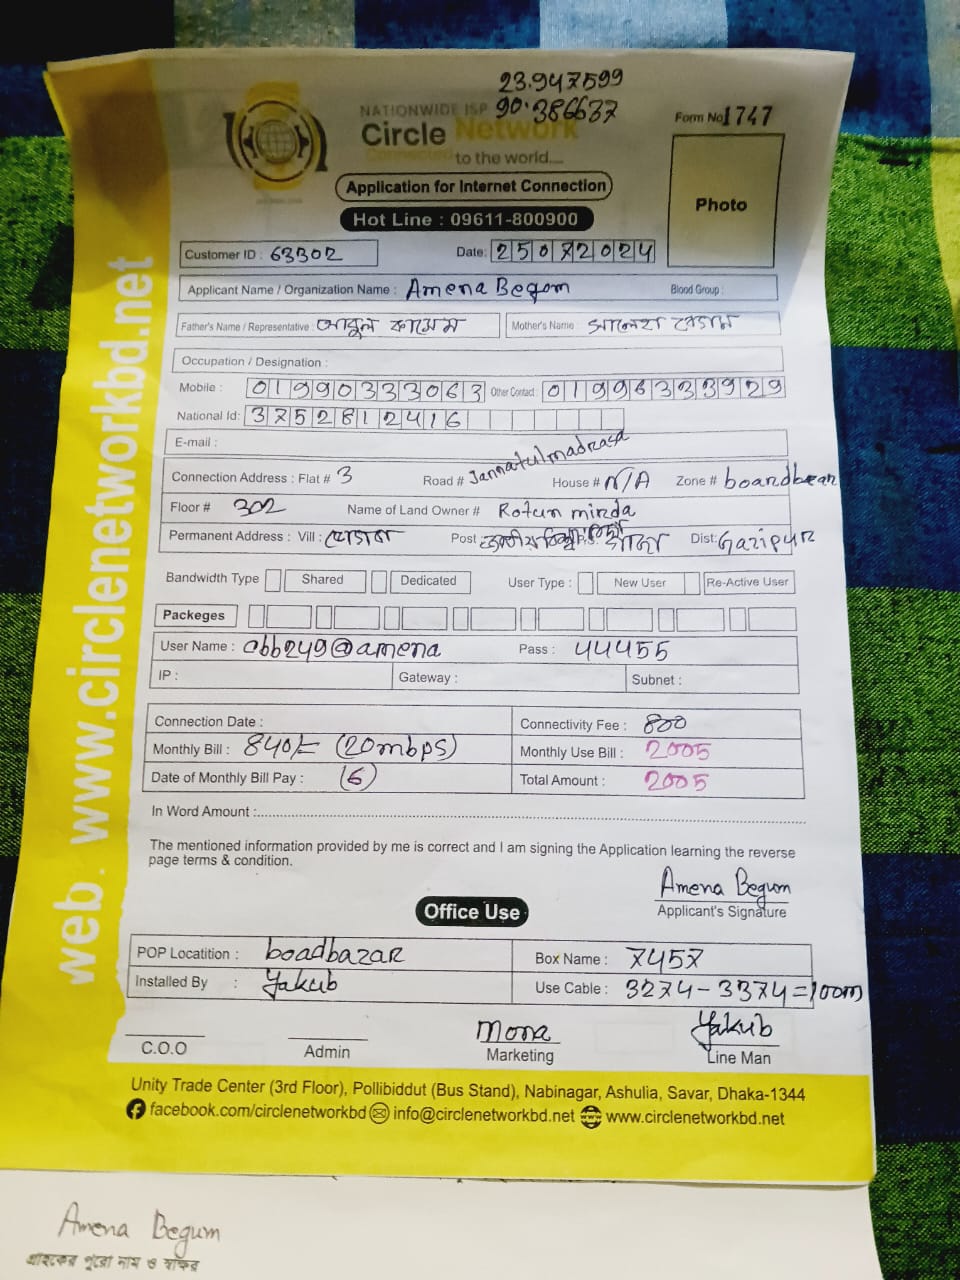 23.947599
NATIONWIDE ISP 90.386637
Form No 1747
Circle Network
to the world....
Application for Internet Connection
Photo
Hot Line : 09611-800900
Customer ID : 63302 Date: 25072024
Applicant Name / Organization Name : Amena Begom Blood Group :
Father's Name / Representative : আবুল কাসেম Mother's Name : সালেহা বেগম
Occupation / Designation :
Mobile : 01990333063 Other Contact: 01996333929
National Id: 3752812416
E-mail :
Connection Address : Flat # 3 Road # Jannatulmadrasa House # N/A Zone # boardbazar
Floor # 302 Name of Land Owner # Rotun mirda
Permanent Address : Vill : Post Dist: Gazipur
Bandwidth Type Shared Dedicated User Type : New User Re-Active User
Packeges
User Name : cbb249@amena Pass : 44455
IP : Gateway : Subnet :
Connection Date : Connectivity Fee : 800
Monthly Bill : 840/= (20mbps) Monthly Use Bill : 2005
Date of Monthly Bill Pay : (6) Total Amount : 2005
In Word Amount :
The mentioned information provided by me is correct and I am signing the Application learning the reverse
page terms & condition.
Amena Begum
Applicant's Signature
Office Use
POP Locatition : boadbazar Box Name : 7457
Installed By : Yakub Use Cable : 3274-3374=100m
Mona Yakub
C.O.O Admin Marketing Line Man
Unity Trade Center (3rd Floor), Pollibiddut (Bus Stand), Nabinagar, Ashulia, Savar, Dhaka-1344
facebook.com/circlenetworkbd info@circlenetworkbd.net www.circlenetworkbd.net
web . www.circlenetworkbd.net
Amena Begum
গ্রাহকের পুরো নাম ও স্বাক্ষর